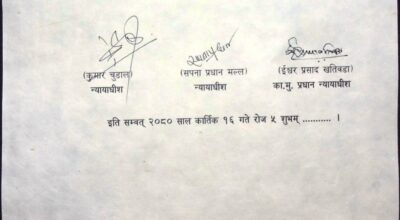 (कुमार चुडाल) (सपना प्रधान मल्ल) (ईश्वर प्रसाद खतिवडा)
न्यायाधीश न्यायाधीश का.मु. प्रधान न्यायाधीश
इति सम्वत् २०८० साल कार्तिक १६ गते रोज ५ शुभम् ........... ।